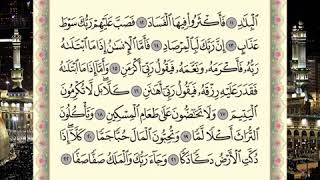 الْبِلَٰدِ ﴿١١﴾ فَأَكْثَرُوا۟ فِيهَا الْفَسَادَ ﴿١٢﴾ فَصَبَّ عَلَيْهِمْ رَبُّكَ سَوْطَ
عَذَابٍ ﴿١٣﴾ إِنَّ رَبَّكَ لَبِالْمِرْصَادِ ﴿١٤﴾ فَأَمَّا الْإِنسَٰنُ إِذَا مَا ابْتَلَىٰهُ
رَبُّهُۥ فَأَكْرَمَهُۥ وَنَعَّمَهُۥ فَيَقُولُ رَبِّىٓ أَكْرَمَنِ ﴿١٥﴾ وَأَمَّآ إِذَا مَا ابْتَلَىٰهُ
فَقَدَرَ عَلَيْهِ رِزْقَهُۥ فَيَقُولُ رَبِّىٓ أَهَٰنَنِ ﴿١٦﴾ كَلَّا ۖ بَل لَّا تُكْرِمُونَ
الْيَتِيمَ ﴿١٧﴾ وَلَا تَحَٰٓضُّونَ عَلَىٰ طَعَامِ الْمِسْكِينِ ﴿١٨﴾ وَتَأْكُلُونَ
التُّرَاثَ أَكْلًا لَّمًّا ﴿١٩﴾ وَتُحِبُّونَ الْمَالَ حُبًّا جَمًّا ﴿٢٠﴾ كَلَّآ إِذَا
دُكَّتِ الْأَرْضُ دَكًّا دَكًّا ﴿٢١﴾ وَجَآءَ رَبُّكَ وَالْمَلَكُ صَفًّا صَفًّا ﴿٢٢﴾